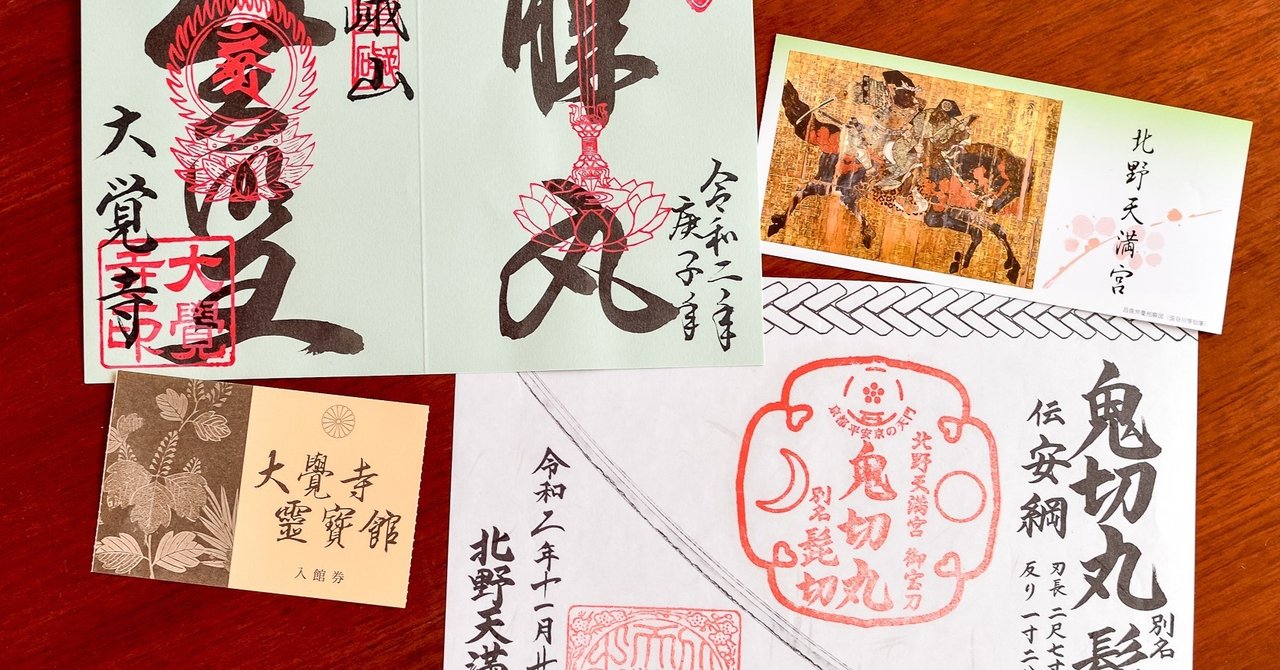 嵯峨山
大覚寺
大覺寺印
丸
令和二年
庚子年
北野天満宮
大覺寺
靈寶館
入館券
鬼切丸
別名
髭
伝安綱
刃長 二尺七寸
反り 一寸二
京都平安京の天門
北野天満宮 御宝刀
鬼切丸
別名 髭切
令和二年十一月廿
北野天満